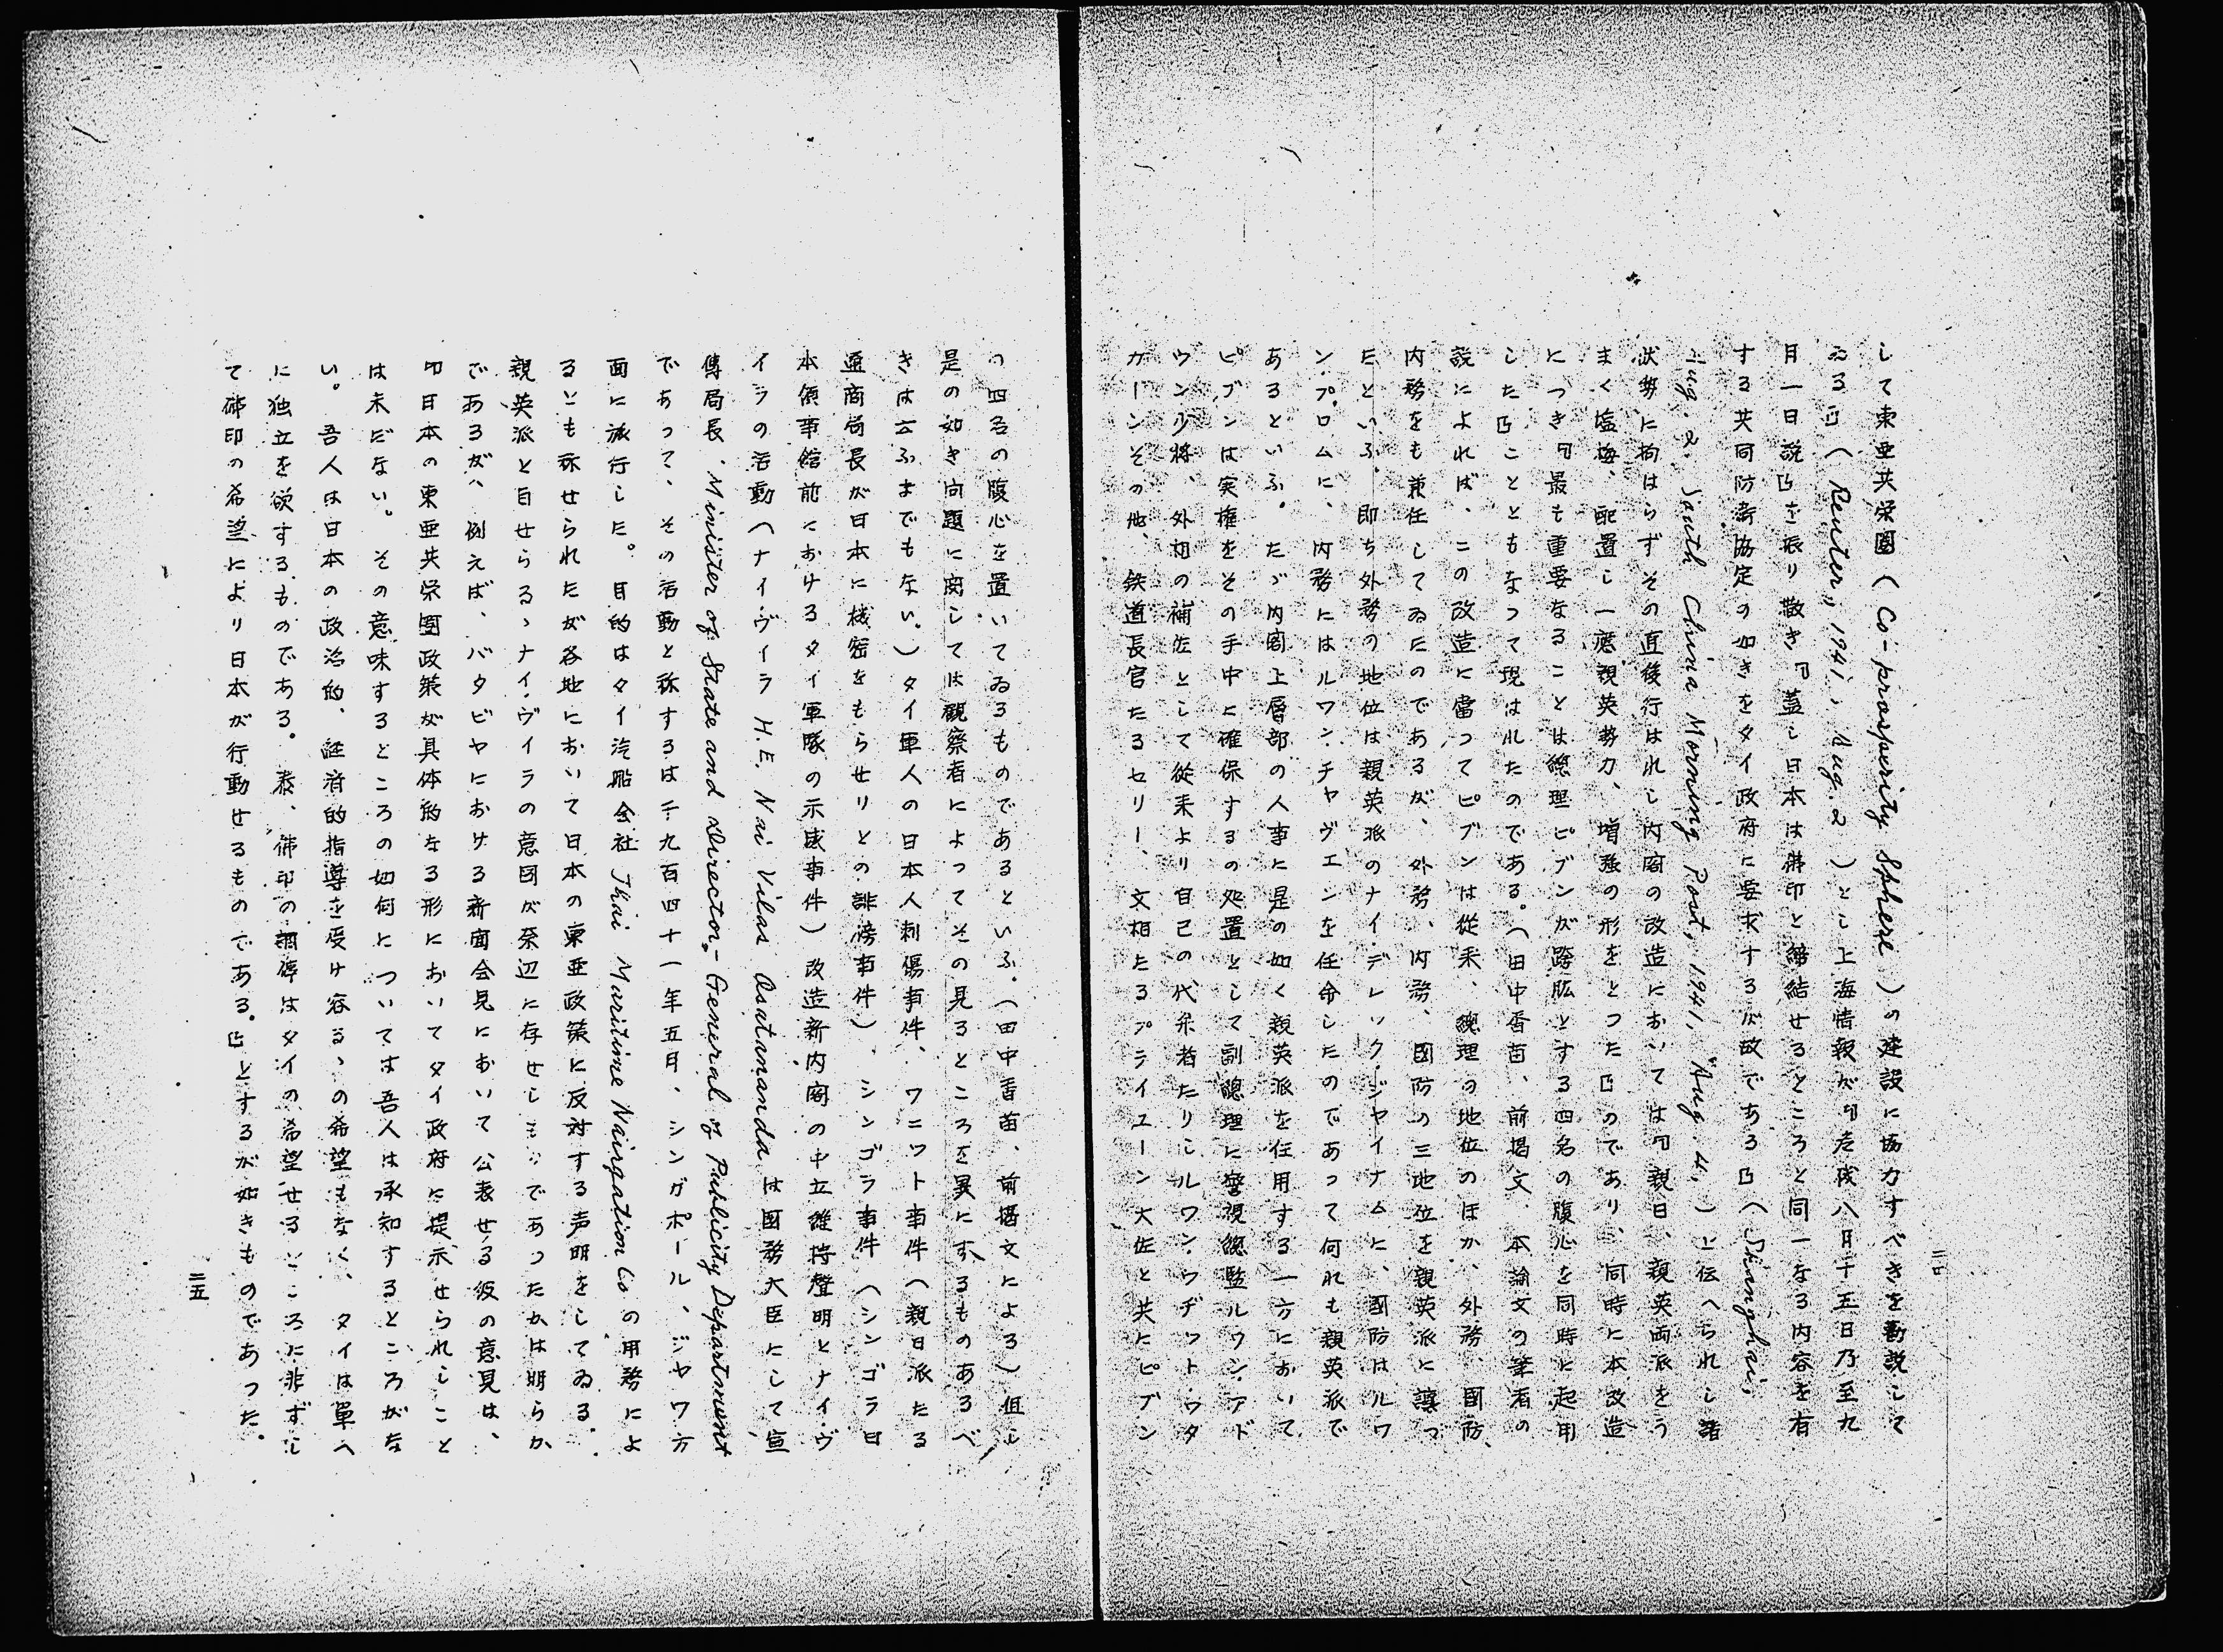 して東亜共栄圏（Co-prosperity Sphere）の建設に協力すべきを勧説して
ゐる』（Reuter, 1941, Aug. 2）とし上海情報が『左様八月十五日乃至九
月一日説』を振り撒き『蓋し日本は佛印と締結せるところと同一なる内容を有
する共同防衛協定の如きをタイ政府に要求するが故である』（Shanghai,
Aug. 2. South China Morning Post, 1941, Aug. 4.）と伝へられし諸
状勢に拘はらずその直後行はれし内閣の改造においては『親日、親英両派をう
まく塩梅、配置し一應親英勢力、増強の形をとつた』のであり、同時に本改造
につき『最も重要なることは総理ピブンが股肱とする四名の腹心を同時に起用
した』こととともなつて現はれたのである。（田中香苗、前掲文、本論文の筆者の
説によれば、この改造に當つてピブンは従来、総理の地位のほか、外務、國防、
内務をも兼任してゐたのであるが、外務、内務、國防の三地位を親英派に譲つ
たといふ。即ち外務の地位は親英派のナイ・デレック・ジヤイナムに、國防はルワ
ン・プロムに、内務にはルワン・チヤヴエンを任命したのであつて何れも親英派で
あるといふ。たゞ内閣上層部の人事に是の如く親英派を任用する一方において
ピブンは実権をその手中に確保するの処置として副總理に警視総監ルワン・アド
ウン少将、外相の補佐として従来より自己の代弁者たりしルワン・ウヂット・ウタ
カーンその他、鉄道長官たるセリー、文相たるプライユーン大佐と共にピブン
二四
の四名の腹心を置いてゐるものであるといふ。（田中香苗、前掲文による）但し
是の如き問題に関しては観察者によつてその見るところを異にするものあるべ
きは云ふまでもない。）タイ軍人の日本人刺傷事件、ワニット事件（親日派たる
通商局長が日本に機密をもらせりとの誹謗事件）、シンゴラ事件（シンゴラ日
本領事館前におけるタイ軍隊の示威事件）改造新内閣の中立維持聲明とナイ・ヴ
イラの活動（ナイ・ヴイラ H.E. Nai Vilas Osatananda は國務大臣にして宣
傳局長、Minister of State and Director-General of Publicity Department
であつて、その活動と称するは千九百四十一年五月、シンガポール、ジヤワ方
面に旅行した。目的はタイ汽船会社 Thai Maritime Navigation Co の用務によ
るとも称せられたが各地において日本の東亜政策に反対する声明をしてゐる。
親英派と目せらるゝナイ・ヴイラの意図が奈辺に存せしものであつたかは明らか
であるが、例えば、バタビヤにおける新聞会見において公表せる彼の意見は、
『日本の東亜共栄圏政策が具体的なる形においてタイ政府に提示せられしこと
は未だない。その意味するところの如何については吾人は承知するところがな
い。吾人は日本の政治的、経済的指導を受け容るゝの希望もなく、タイは單へ
に独立を欲するものである。泰、佛印の調停はタイの希望せるところに非ずし
て佛印の希望により日本が行動せるものである。』とするが如きものであつた。
二五